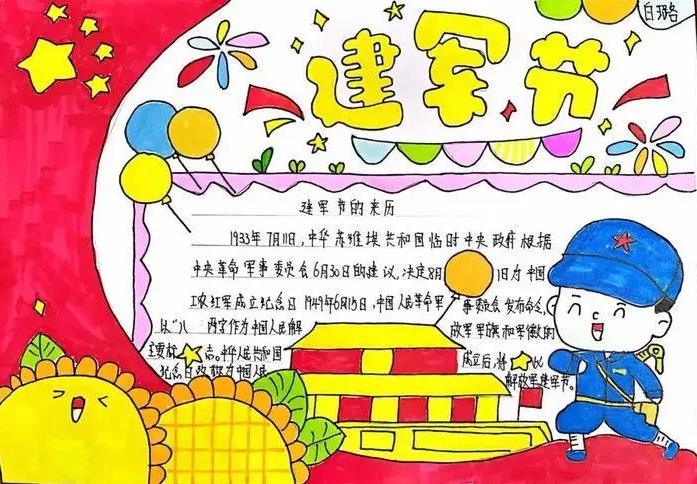 白珞
建军节
建军节的来历
1933年7月11日,中华苏维埃共和国临时中央政府根据
中央革命军事委员会6月30日的建议,决定8月1日为中国
工农红军成立纪念日 1949年6月15日,中国人民革命军事委员会发布命令,
以“八一”两字作为中国人民解放军军旗和军徽的
主要标志。中华人民共和国成立后,将此
纪念日改称为中国人民解放军建军节。